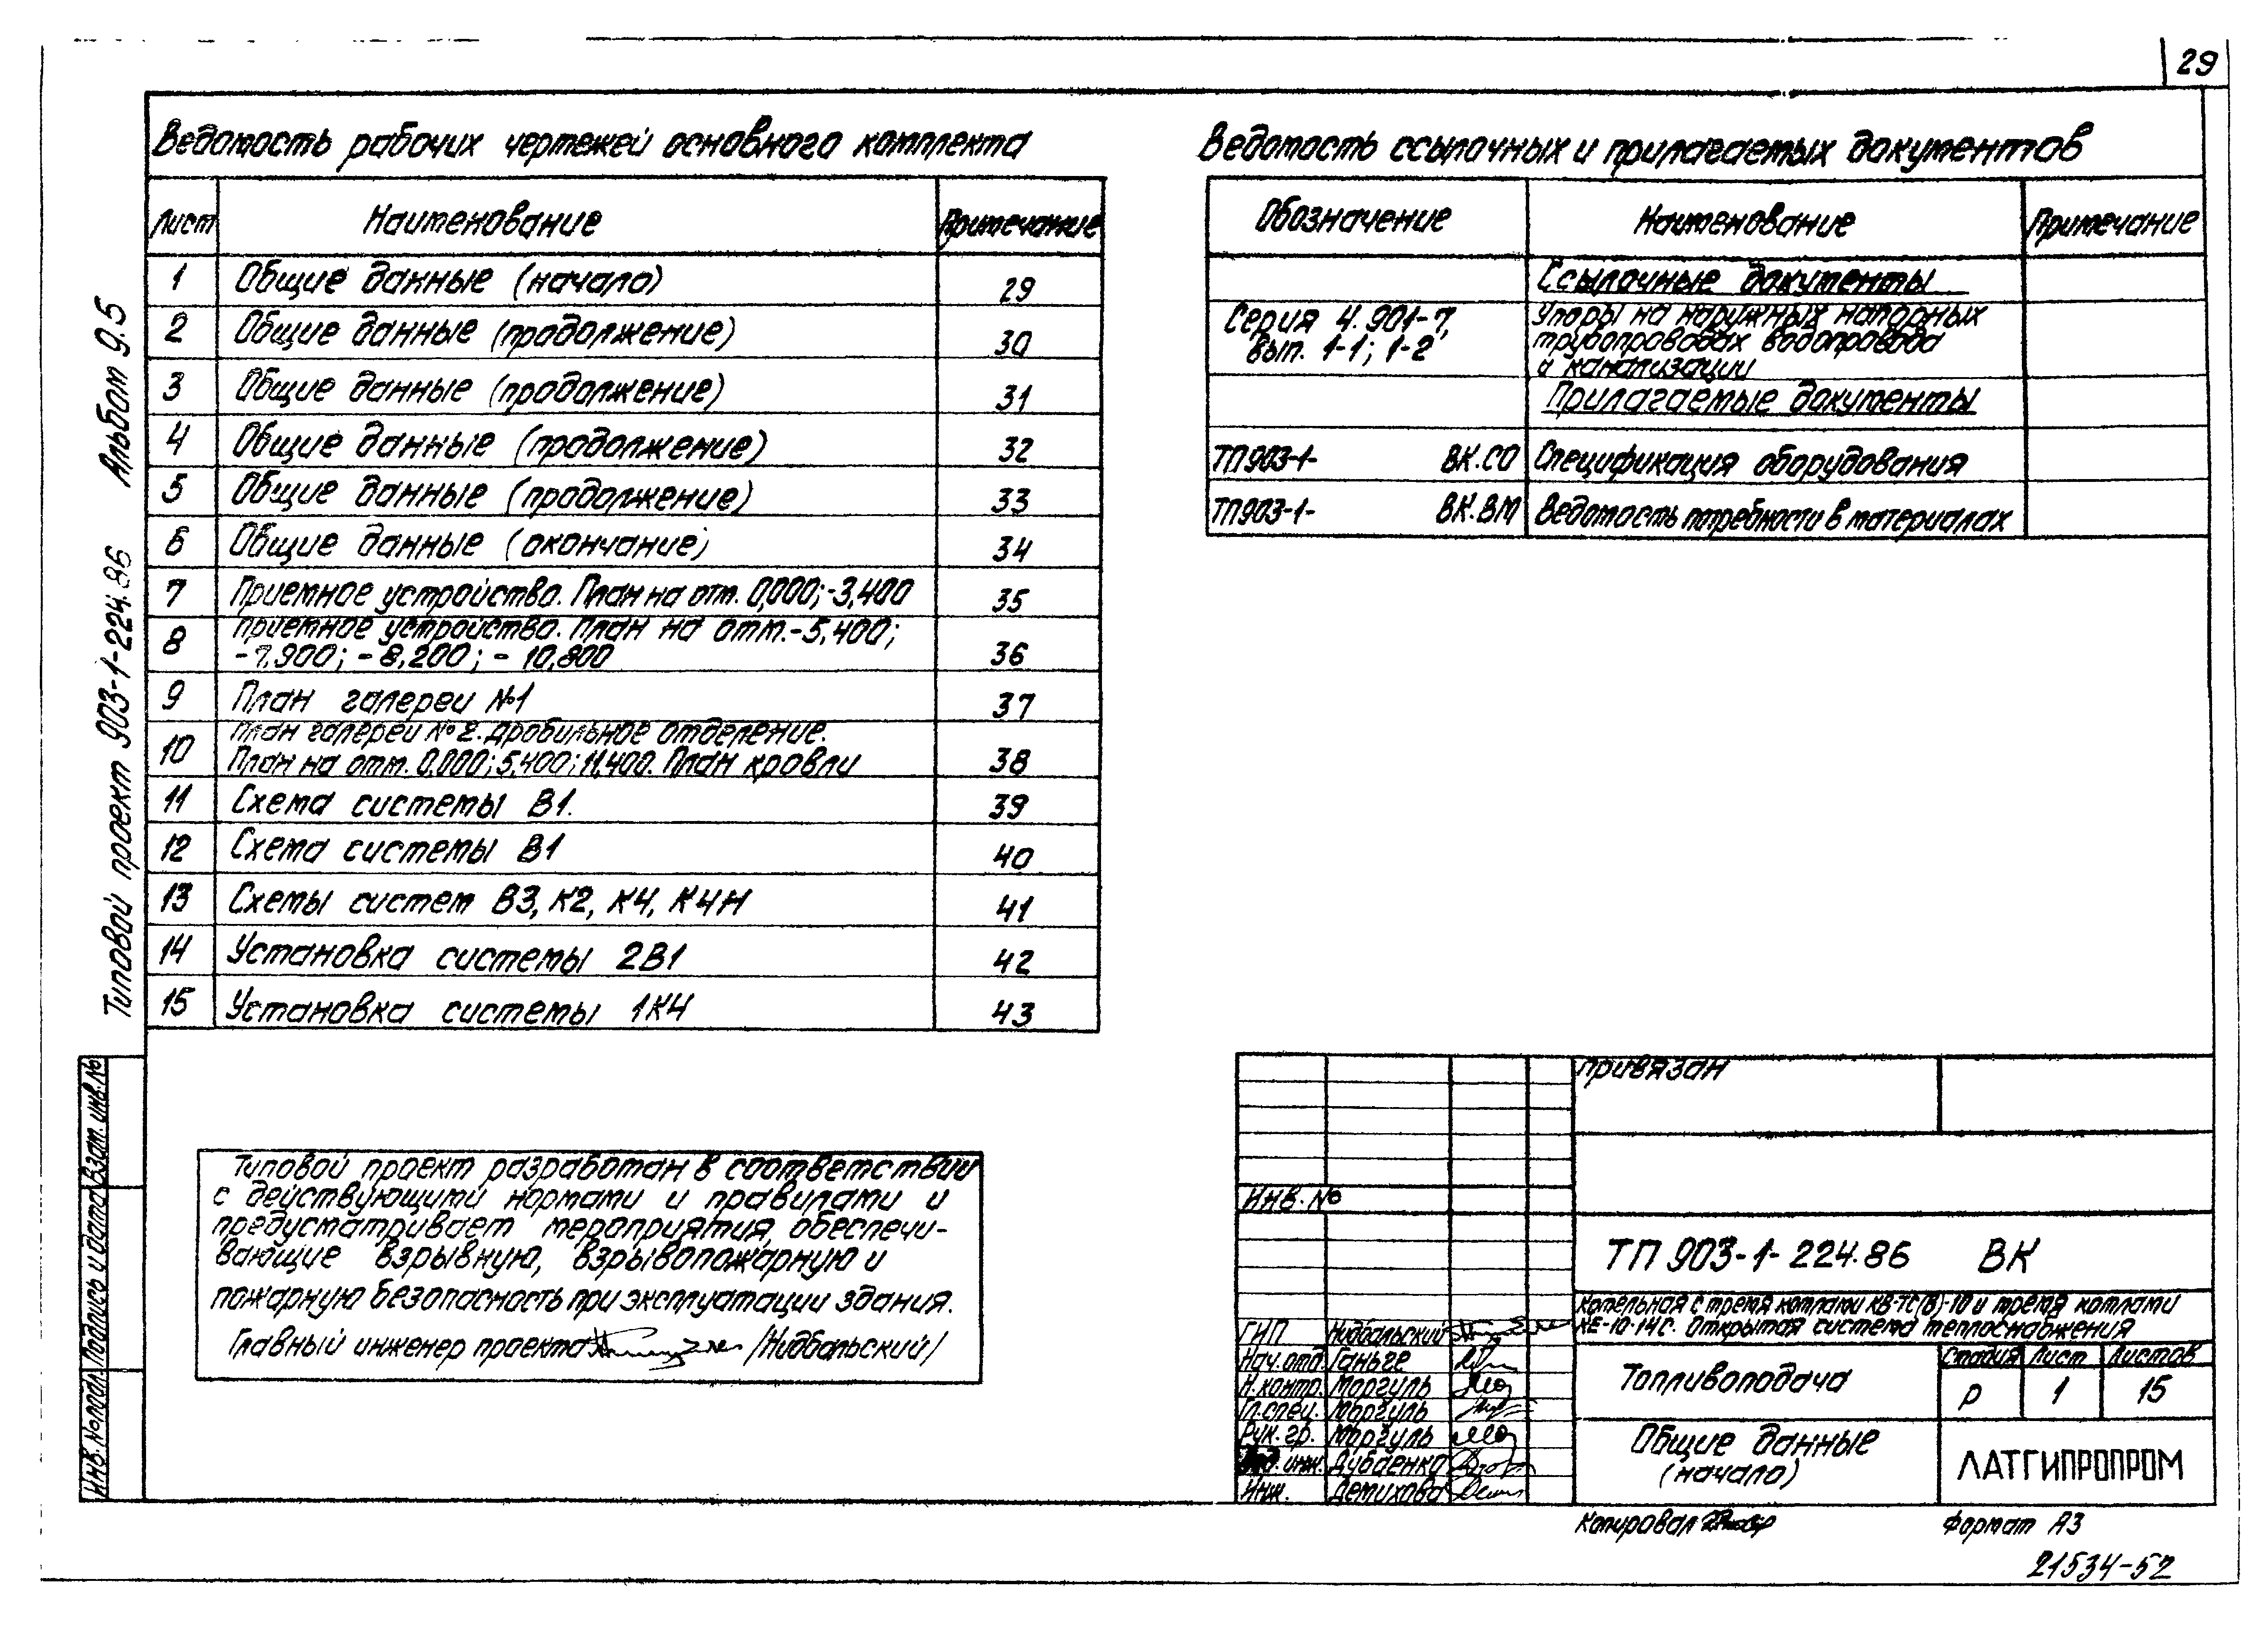 29
Ведомость рабочих чертежей основного комплекта
Лист Наименование Примечание
1 Общие данные (начало) 29
2 Общие данные (продолжение) 30
3 Общие данные (продолжение) 31
4 Общие данные (продолжение) 32
5 Общие данные (продолжение) 33
6 Общие данные (окончание) 34
7 Приемное устройство. План на отм. 0,000; -3,400 35
8 Приемное устройство. План на отм. -5,400;
-7,900; -8,200; -10,800 36
9 План галереи №1 37
10 План галереи №2. Дробильное отделение.
План на отм. 0,000; 5,400; 11,400. План кровли 38
11 Схема системы В1. 39
12 Схема системы В1 40
13 Схемы систем В3, К2, К4, К4Н 41
14 Установка системы 2В1 42
15 Установка системы 1К4 43
Ведомость ссылочных и прилагаемых документов
Обозначение Наименование Примечание
Ссылочные документы
Серия 4.901-7, Упоры на наружных напорных
вып. 1-1; 1-2 трубопроводах водопровода
и канализации
Прилагаемые документы
ТП903-1- ВК.СО Спецификация оборудования
ТП903-1- ВК.ВМ Ведомость потребности в материалах
Типовой проект 903-1-224.86 Альбом 9.5
Инв. № подл. Подпись и дата Взам. инв. №
Типовой проект разработан в соответствии
с действующими нормами и правилами и
предусматривает мероприятия, обеспечи-
вающие взрывную, взрывопожарную и
пожарную безопасность при эксплуатации здания.
Главный инженер проекта /Нидбальский/
Привязан
Инв. №
ТП 903-1-224.86 ВК
Котельная с тремя котлами КВ-ТС(В)-10 и тремя котлами
КЕ-10-14С. Открытая система теплоснабжения
ГИП Нидбальский
Нач. отд. Ганьге
Н. контр. Моргуль
Гл. спец. Моргуль
Рук. гр. Моргуль
инж. Дубаенко
Инж. Демихова
Топливоподача
Стадия Лист Листов
Р 1 15
Общие данные
(начало)
ЛАТГИПРОПРОМ
Копировал
Формат А3
21534-52